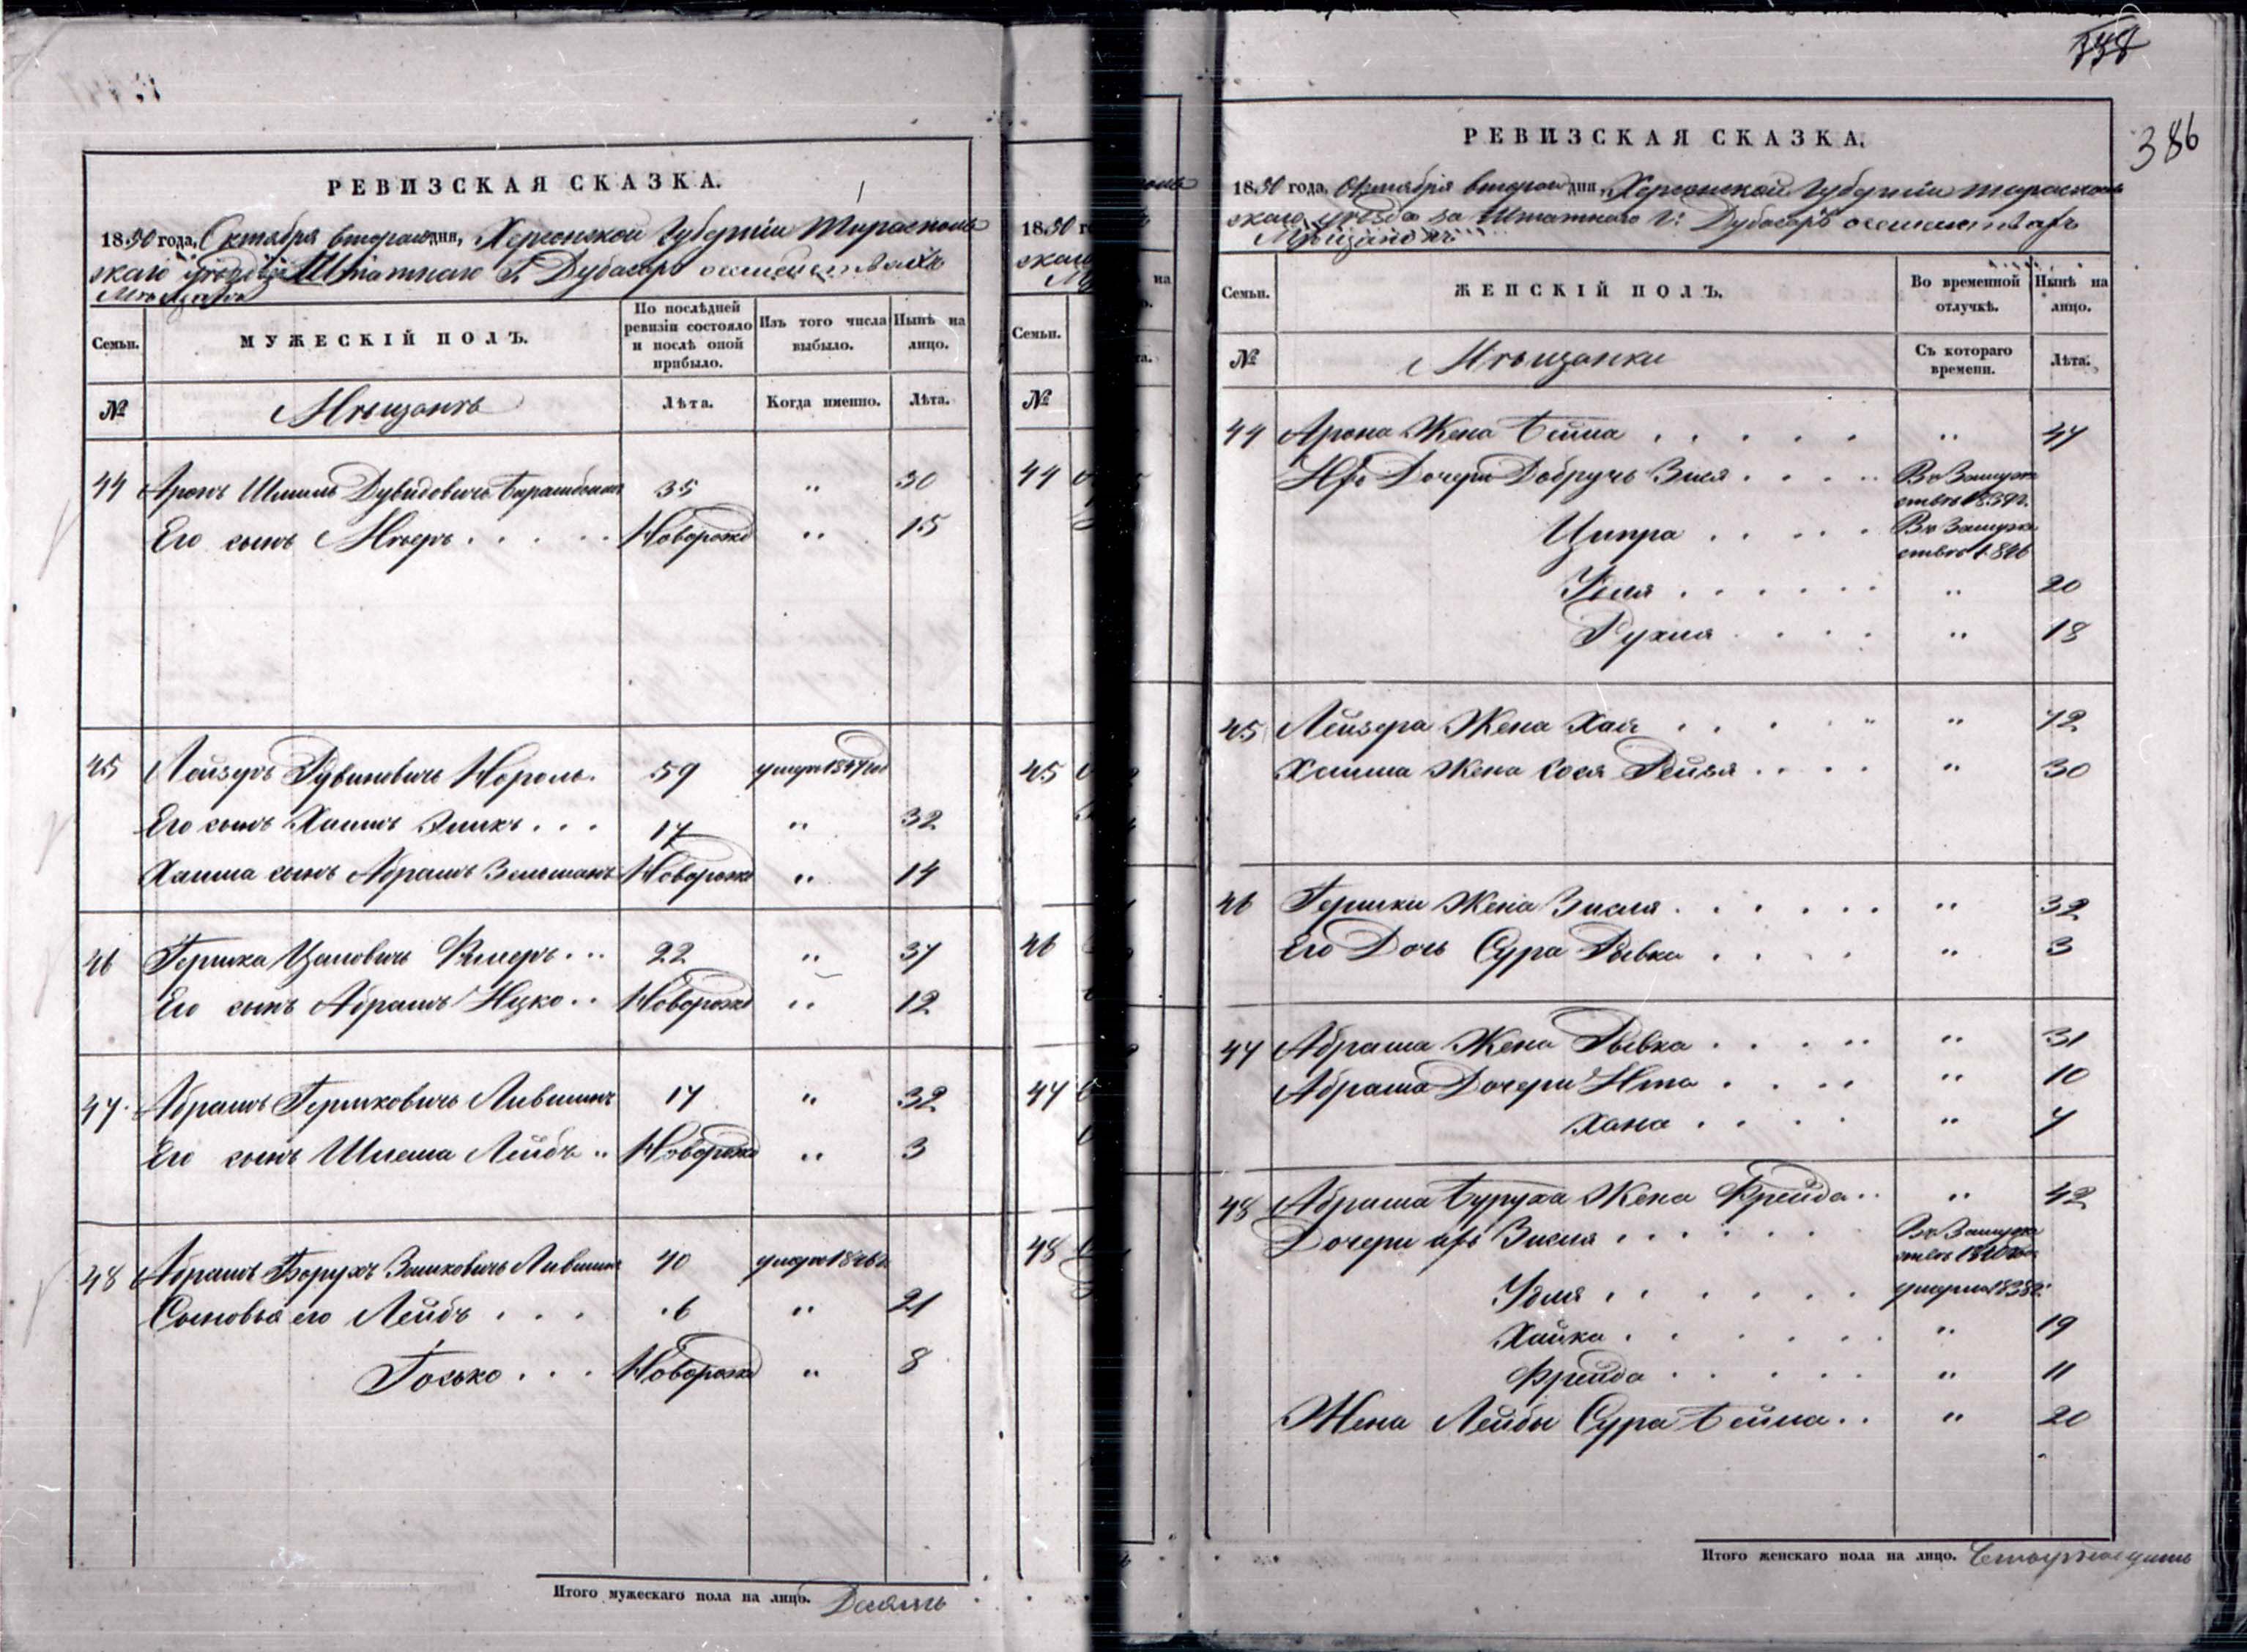 РЕВИЗСКАЯ СКАЗКА.
1850 года, Октября второго дня, Херсонской Губернiи Тираспольскаго уѣзда Штатнаго Г. Дубасаръ о
Мѣщанъ
Семьи.
МУЖЕСКIЙ ПОЛЪ.
По послѣдней ревизiи состояло и послѣ оной прибыло.
Изъ того числа выбыло.
Нынѣ на лицо.
№
Мѣщанъ
Лѣта.
Когда именно.
Лѣта.
44 Аронъ Шмиль Дувидовичъ 35 " 30
Его сынъ Мееръ . . . . . Новорожд " 15
45 Лейзеръ Рувиновичъ Король. 59 умеръ 1847 год
Его сынъ Хаимъ . . . 17 " 32
Хаима сынъ Абрамъ Зельманъ Новорожд " 14
46 Гершка Цаповичъ . . . 22 " 37
Его сынъ Абрамъ Ицко . . Новорожд " 12
47 Абрамъ Гершковичъ Лившицъ 17 " 32
Его сынъ Шлема Лейбъ " Новорожд " 3
48 Абрамъ Борухъ Лившицъ 40 умеръ 1846
Сыновья его Лейбъ . . . 6 " 21
Госько . . . Новорожд " 8
Итого мужескаго пола на лицо. Десять
1850 г
скаго
Семьи.
№
44
45
46
47
48
338
386
РЕВИЗСКАЯ СКАЗКА.
1850 года, Октября второго дня, Херсонской Губернiи Тираспольскаго уѣзда за Штатнаго Г. Дубасаръ о
Мѣщанокъ
Семьи.
ЖЕНСКIЙ ПОЛЪ.
Во временной отлучкѣ.
Нынѣ на лицо.
№
Мѣщанки
Съ котораго времени.
Лѣта.
44 Арона Жена Бейла . . . . . " 47
Ихъ Дочери Добручъ Зися . . . . Въ Замужествѣ 1839г.
Ципра . . . . . Въ Замужествѣ 1846
Удля . . . . . . " 20
Рухля . . . . " 18
45 Лейзера Жена Хая . . . . " " 72
Хаима Жена Сося Рейзя . . . . " 30
46 Гершки Жена Зисля . . . . . . " 32
Его Дочь Сура Рывка . . . . " 3
47 Абрама Жена Рывка . . . . " 31
Абрама Дочери Ита . . . . " 10
Хана . . . . " 7
48 Абрама Буруха Жена Фрейда . . " 42
Дочери ихъ Зисля . . . . . . Въ Замужествѣ 1840
Удля . . . . . . умерла 1838г.
Хайка . . . . . . " 19
Фрейда . . . . . " 11
Жена Лейбы Сура Бейла . . " 20
Итого женскаго пола на лицо. Четырнадцать